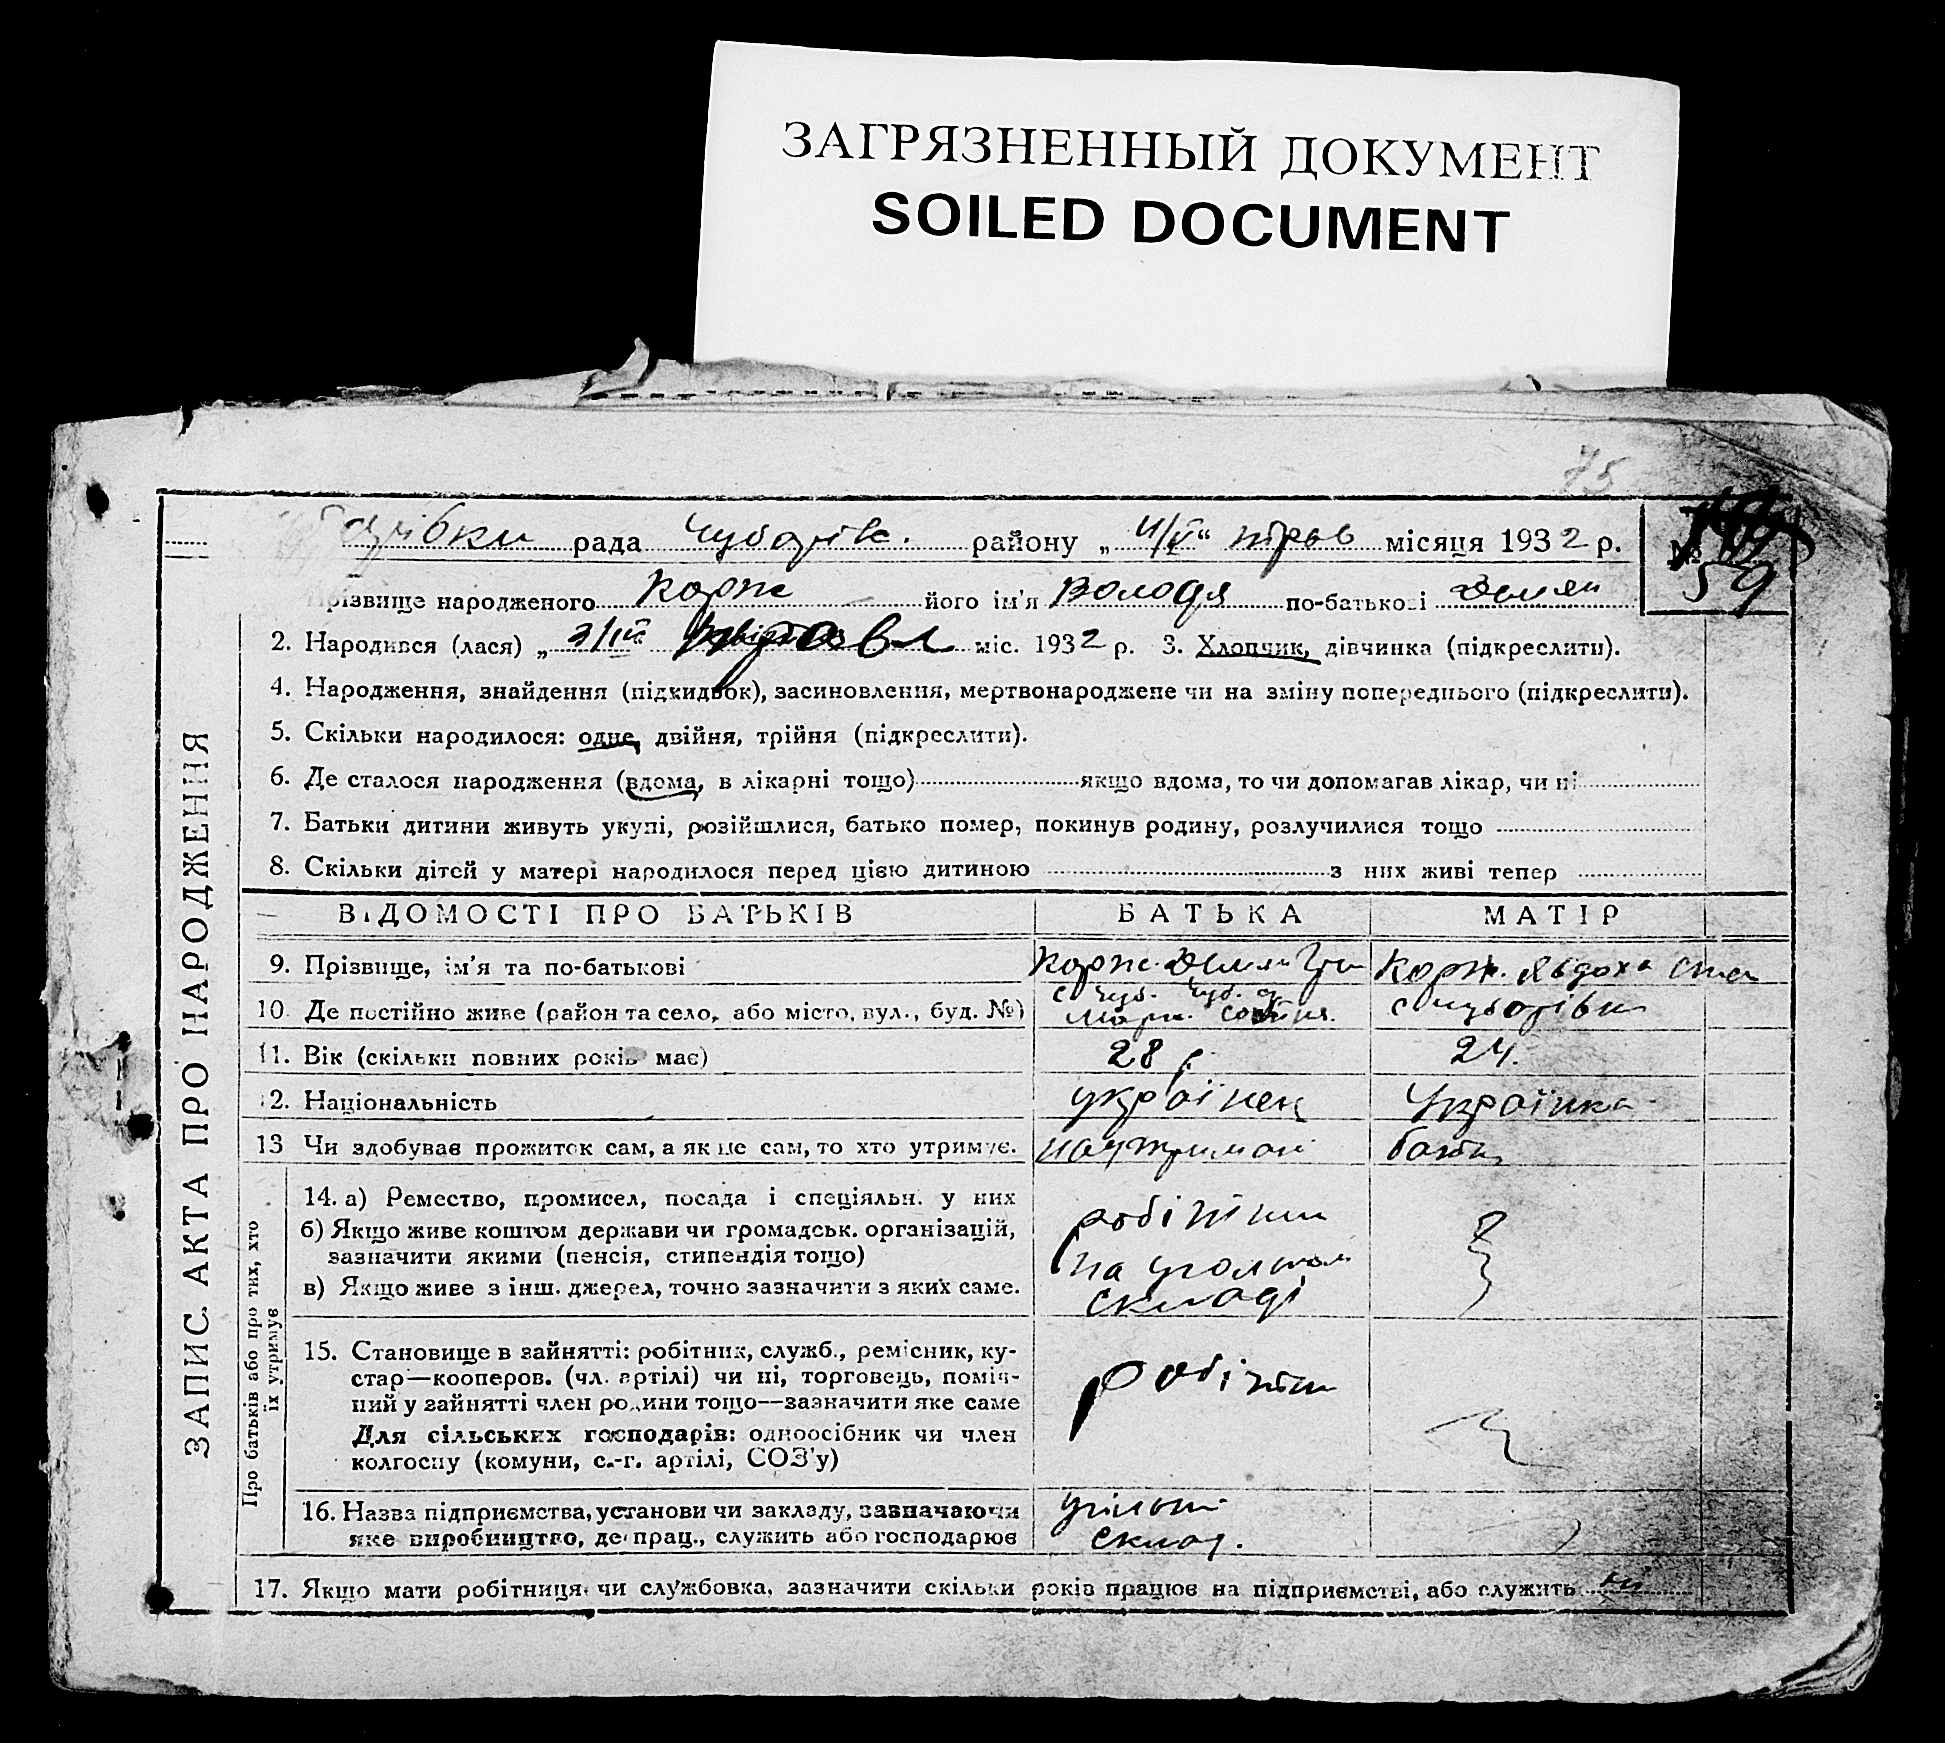 ЗАГРЯЗНЕННЫЙ ДОКУМЕНТ
SOILED DOCUMENT
75
рада района „ “ місяця 1932 р. №
59
Прізвище народженого Корж його ім'я Володя по-батькові Демян
2. Народився (лася) „ “ міс. 1932 р. 3. Хлопчик, дівчинка (підкреслити).
4. Народження, знайдення (підкидьок), засиновлення, мертвонароджене чи на зміну попереднього (підкреслити).
5. Скільки народилося: одне, двійня, трійня (підкреслити).
6. Де сталося народження (вдома, в лікарні тощо) якщо вдома, то чи допомагав лікар, чи ні
7. Батьки дитини живуть укупі, розійшлися, батько помер, покинув родину, розлучилися тощо
8. Скільки дітей у матері народилося перед цією дитиною з них живі тепер
ВІДОМОСТІ ПРО БАТЬКІВ БАТЬКА МАТІР
9. Прізвище, ім'я та по-батькові Корж Демян Корж Явдоха
10. Де постійно живе (район та село, або місто, вул., буд. №)
11. Вік (скільки повних років має) 28 р. 24.
12. Національність українец Українка
13 Чи здобуває прожиток сам, а як не сам, то хто утримує.
14. а) Ремество, промисел, посада і спеціяльн. у них
б) Якщо живе коштом держави чи громадськ. організацій,
зазначити якими (пенсія, стипендія тощо)
в) Якщо живе з інш. джерел, точно зазначити з яких саме.
робітник
на
складі
15. Становище в зайнятті: робітник, служб., ремісник, ку-
стар—кооперов. (чл. артілі) чи ні, торговець, поміч-
ний у зайнятті член родини тощо—зазначити яке саме
Для сільських господарів: одноосібник чи член
колгоспу (комуни, с.-г. артілі, СОЗ'у)
робітник
16. Назва підприємства, установи чи закладу, зазначаючи
яке виробництво, де прац., служить або господарює
склад.
17. Якщо мати робітниця чи службовка, зазначити скільки років працює на підприємстві, або служить ні
ЗАПИС АКТА ПРО НАРОДЖЕННЯ
Про батьків або про тих, хто
їх утримує